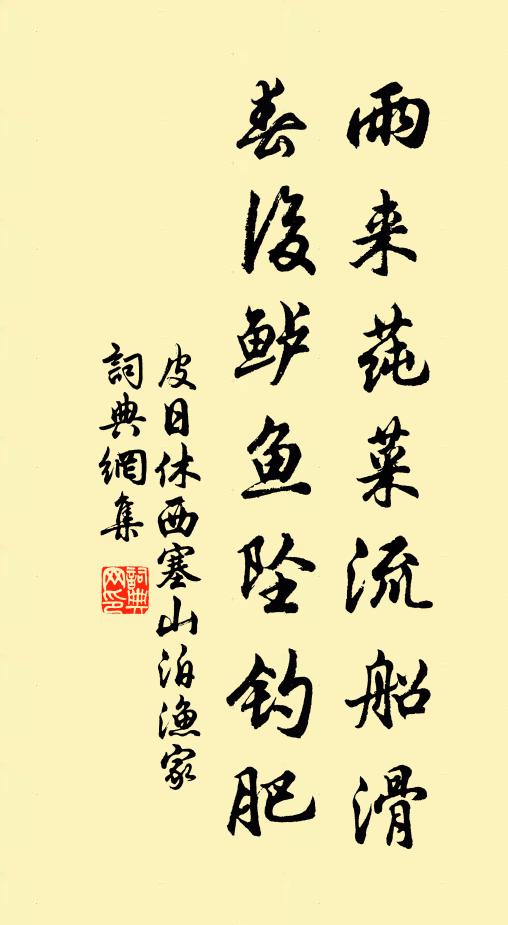 雨来莼菜流船滑
春後鲈鱼坠钓肥
皮日休西塞山泊渔家
詞典網集
詞典
网印